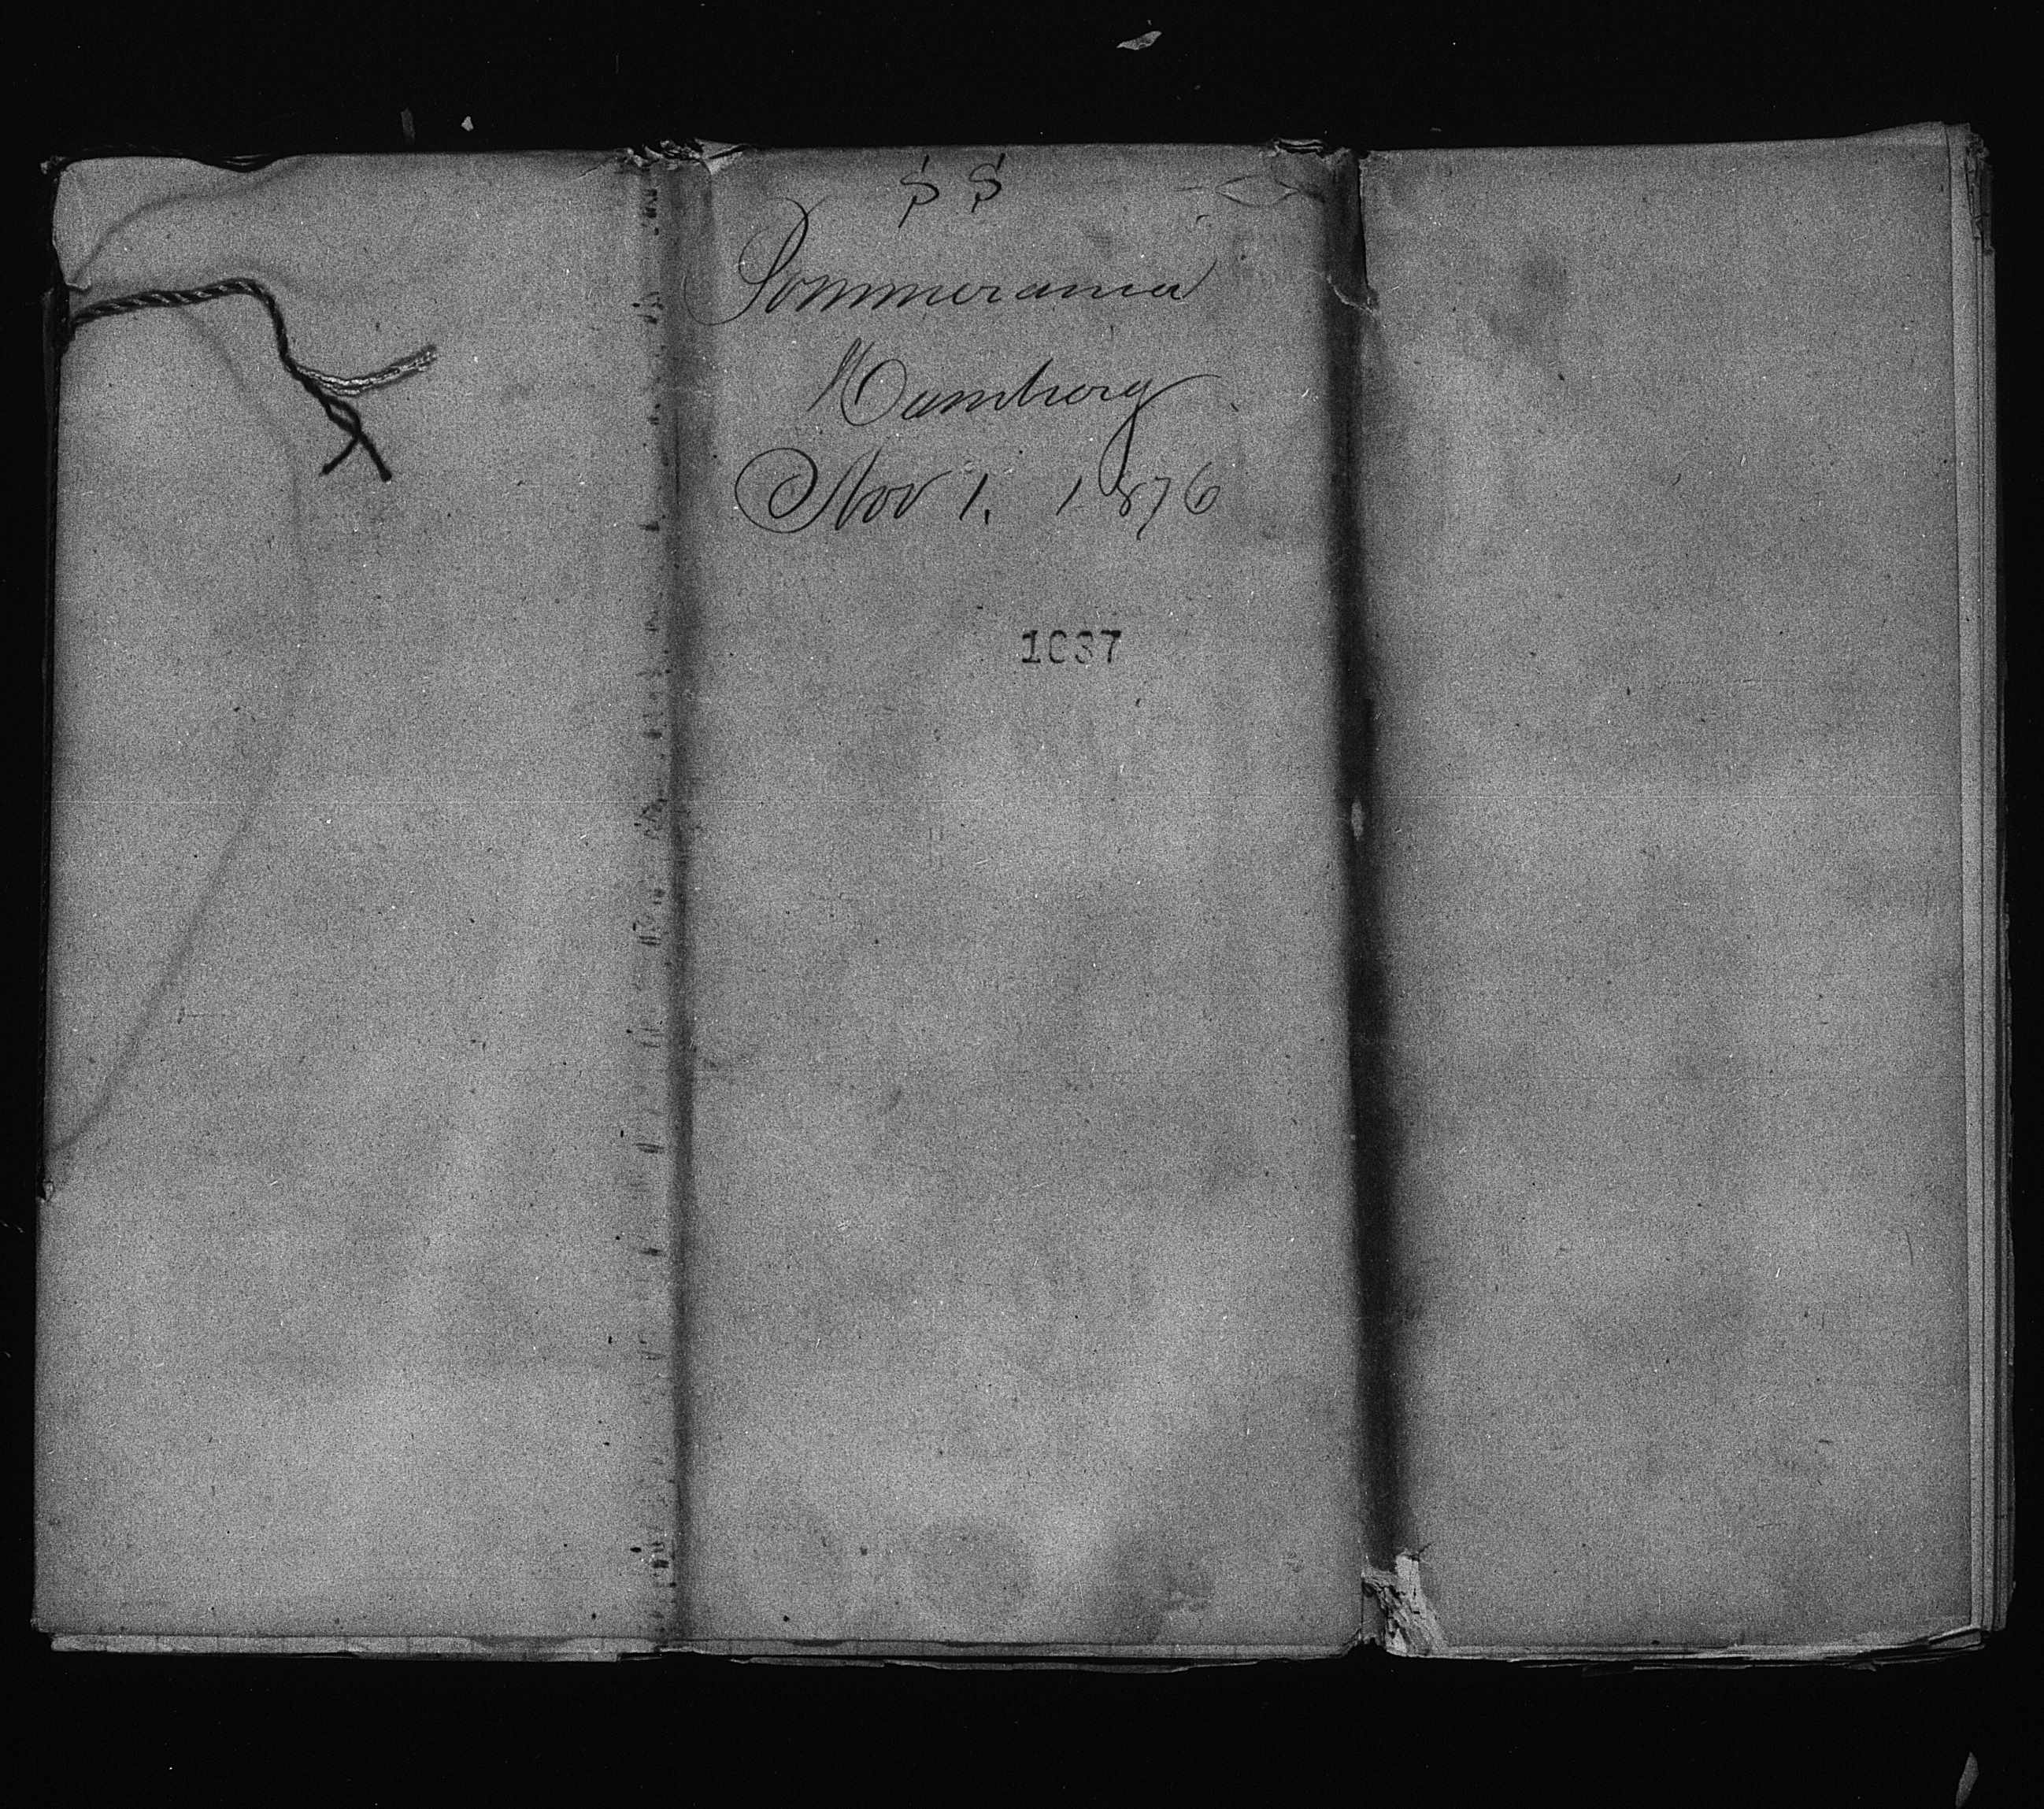 SS
Pommerania
Hamburg
Nov 1. 1876
1037